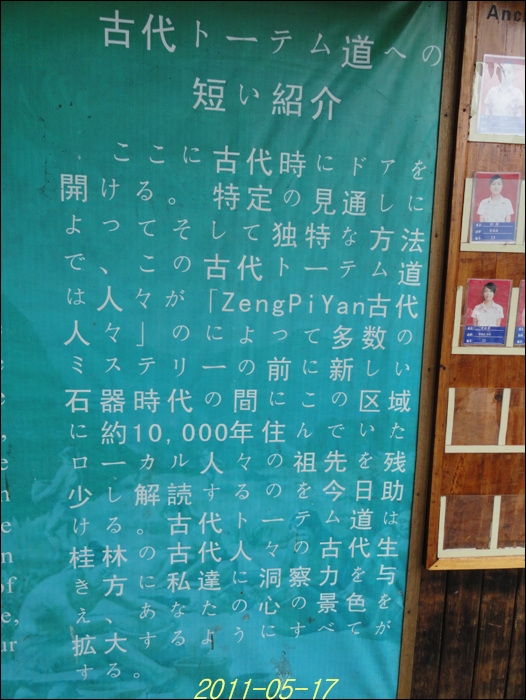 古代トーテム道への
短い紹介
ここに古代時にドアを
開ける。特定の見通しに
よってそして独特な方法
で、この古代トーテム道
は人々が「ZengPiYan古代
人々」のによって多数の
ミステリーの前に新しい
石器時代の間にこの区域
に約10,000年住んでいた
ローカル人々の祖先を残
少し解読するのを今日助
ける。古代トーテム道は
桂林の古代人々の古代生
き方に私達に洞察力を与
え、あなたの心の景色を
拡大するようにすべてが
する。
Anc
2011-05-17